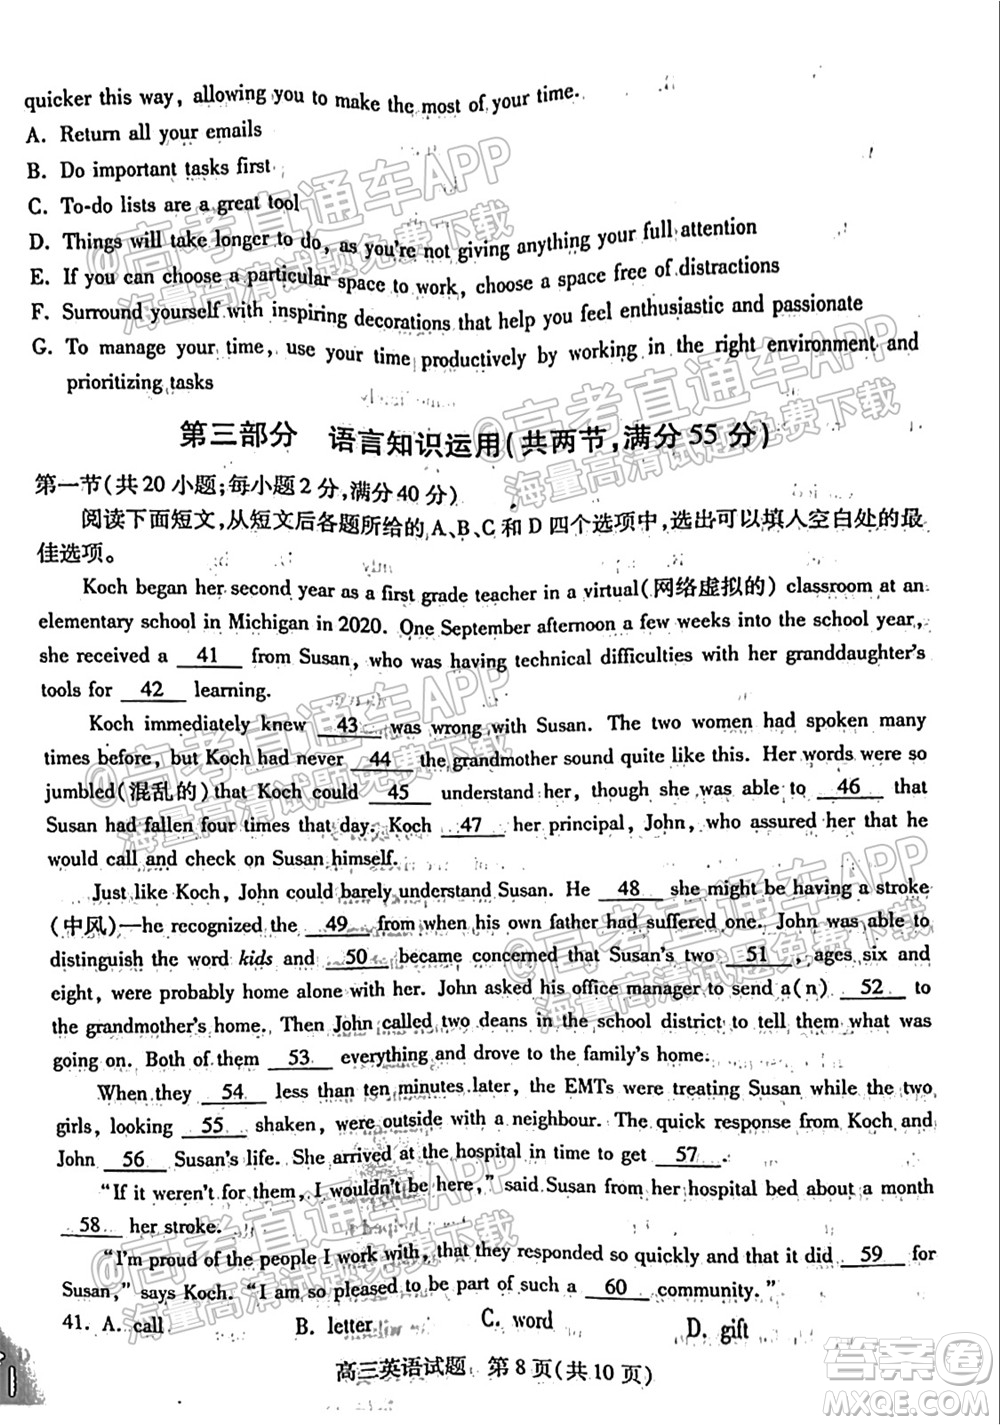 quicker this way, allowing you to make the most of your time.
A. Return all your emails
B. Do important tasks first
C. To-do lists are a great tool
D. Things will take longer to do, as you're not giving anything your full attention
E. If you can choose a particular space to work, choose a space free of distractions
F. Surround yourself with inspiring decorations that help you feel enthusiastic and passionate
G. To manage your time, use your time productively by working in the right environment and
prioritizing tasks
第三部分 语言知识运用(共两节,满分55分)
第一节(共20小题;每小题2分,满分40分)
阅读下面短文,从短文后各题所给的A、B、C和D四个选项中,选出可以填入空白处的最
佳选项。
Koch began her second year as a first grade teacher in a virtual(网络虚拟的) classroom at an
elementary school in Michigan in 2020. One September afternoon a few weeks into the school year,
she received a 41 from Susan, who was having technical difficulties with her granddaughter's
tools for 42 learning.
Koch immediately knew 43 was wrong with Susan. The two women had spoken many
times before, but Koch had never 44 the grandmother sound quite like this. Her words were so
jumbled(混乱的) that Koch could 45 understand her, though she was able to 46 that
Susan had fallen four times that day. Koch 47 her principal, John, who assured her that he
would call and check on Susan himself.
Just like Koch, John could barely understand Susan. He 48 she might be having a stroke
(中风)—he recognized the 49 from when his own father had suffered one. John was able to
distinguish the word kids and 50 became concerned that Susan's two 51, ages six and
eight, were probably home alone with her. John asked his office manager to send a(n) 52 to
the grandmother's home. Then John called two deans in the school district to tell them what was
going on. Both of them 53 everything and drove to the family's home.
When they 54 less than ten minutes later, the EMTs were treating Susan while the two
girls, looking 55 shaken, were outside with a neighbour. The quick response from Koch and
John 56 Susan's life. She arrived at the hospital in time to get 57.
"If it weren't for them, I wouldn't be here," said Susan from her hospital bed about a month
58 her stroke.
"I'm proud of the people I work with, that they responded so quickly and that it did 59 for
Susan," says Koch. "I am so pleased to be part of such a 60 community."
41. A. call B. letter C. word D. gift
高三英语试题 第8页(共10页)
@高考直通车APP
海量高清试题免费下载
@高考直通车APP
海量高清试题免费下载
@高考直通车APP
海量高清试题免费下载
@高考直通车APP
海量高清试题免费下载
@高考直通车APP
海量高清试题免费下载
答案圈
MXQE.COM